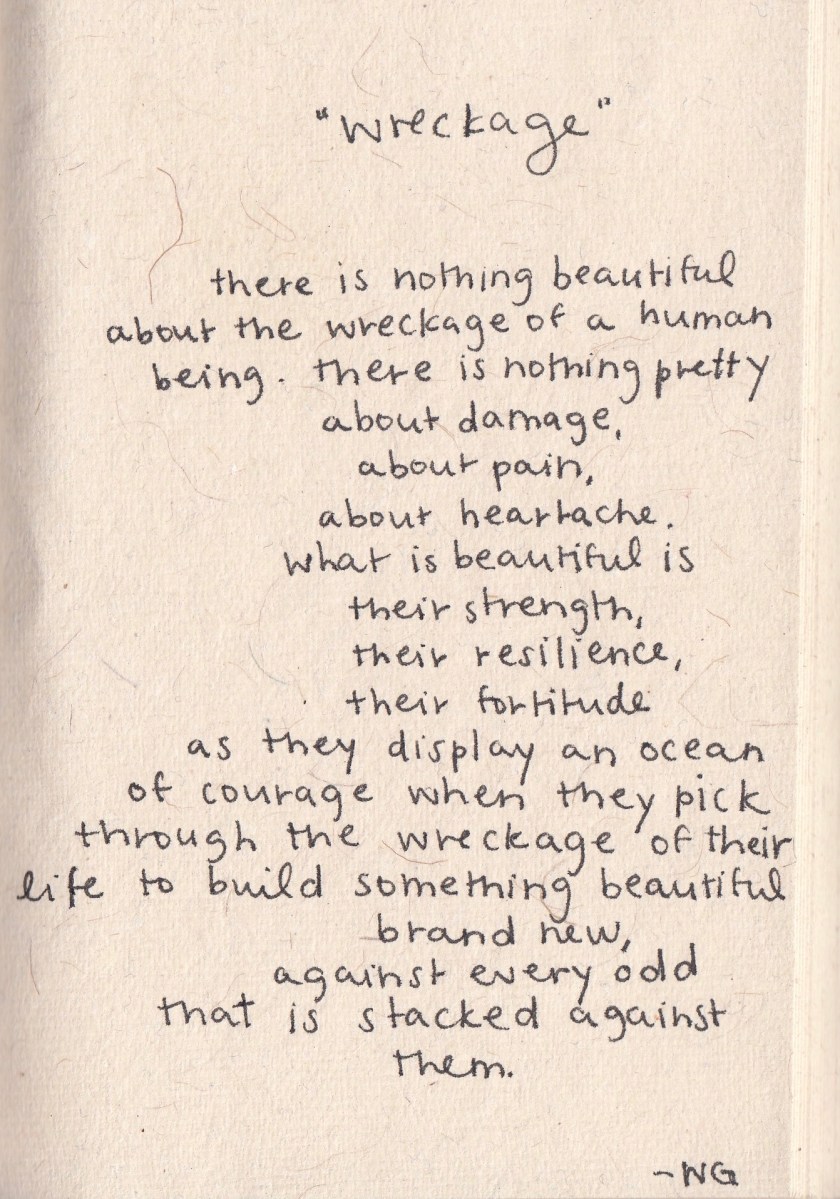 "wreckage"
there is nothing beautiful
about the wreckage of a human
being. there is nothing pretty
about damage,
about pain,
about heartache.
what is beautiful is
their strength,
their resilience,
their fortitude
as they display an ocean
of courage when they pick
through the wreckage of their
life to build something beautiful
brand new,
against every odd
that is stacked against
them.
-NG